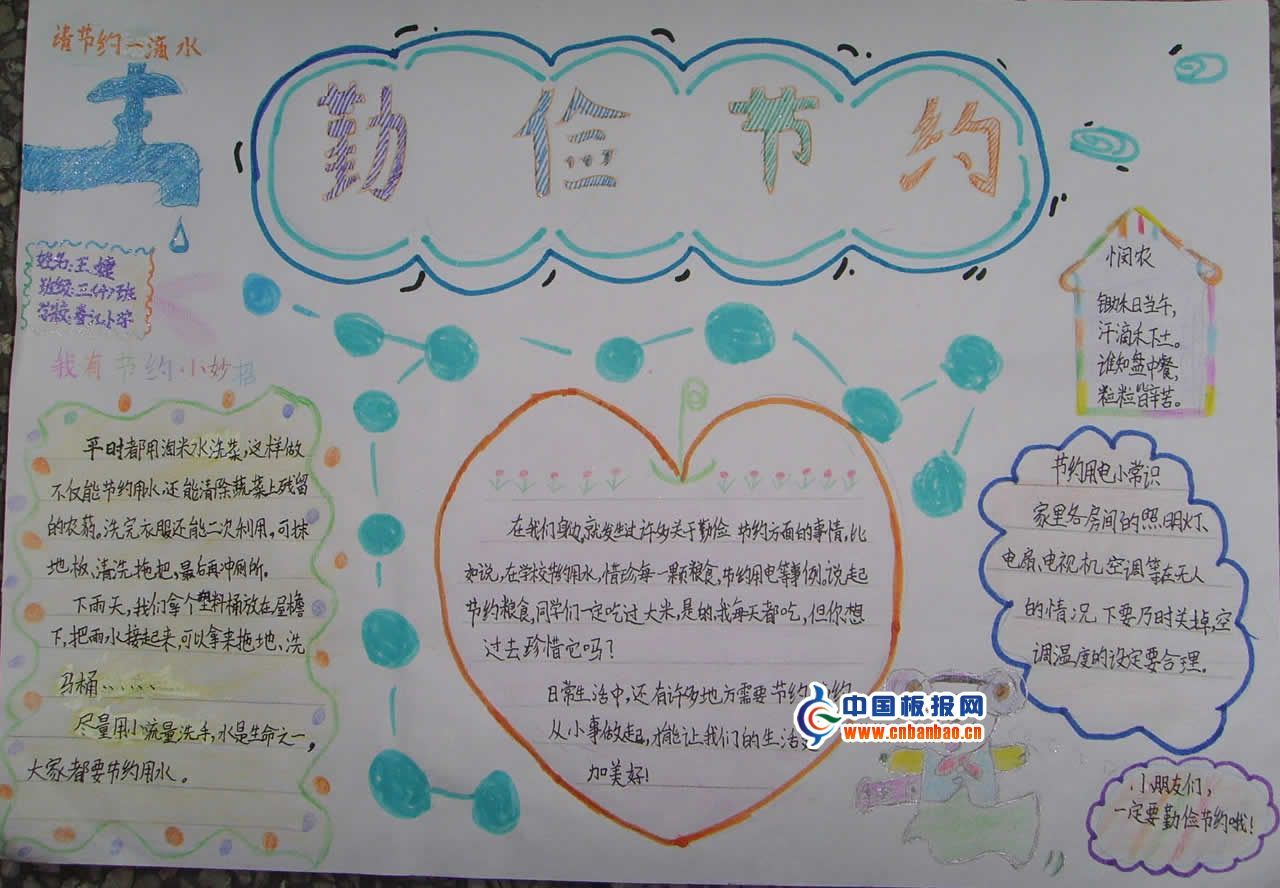 请节约一滴水
勤俭节约
姓名:王婕
班级:三(4)班
学校:春江小学
我有节约小妙招
平时都用淘米水洗菜,这样做
不仅能节约用水,还能清除蔬菜上残留
的农药。洗完衣服还能二次利用。可抹
地板,清洗拖把,最后再冲厕所。
下雨天,我们拿个塑料桶放在屋檐
下,把雨水接起来,可以拿来拖地、洗
马桶......
尽量用小流量洗手,水是生命之一,
大家都要节约用水。
在我们身边,就发生过许多关于勤俭 节约方面的事情。比
如说,在学校节约用水,惜珍每一颗粮食,节约用电等事例。说起
节约粮食,同学们一定吃过大米,是的,我每天都吃,但你想
过去珍惜它吗?
日常生活中,还有许多地方需要节约
从小事做起,才能让我们的生活更
加美好!
悯农
锄禾日当午,
汗滴禾下土。
谁知盘中餐,
粒粒皆辛苦。
节约用电小常识
家里各房间的照明灯、
电扇、电视机、空调等在无人
的情况 下要及时关掉,空
调温度的设定要合理.
中国板报网
www.cnbanbao.cn
小朋友们,
一定要勤俭节约哦!